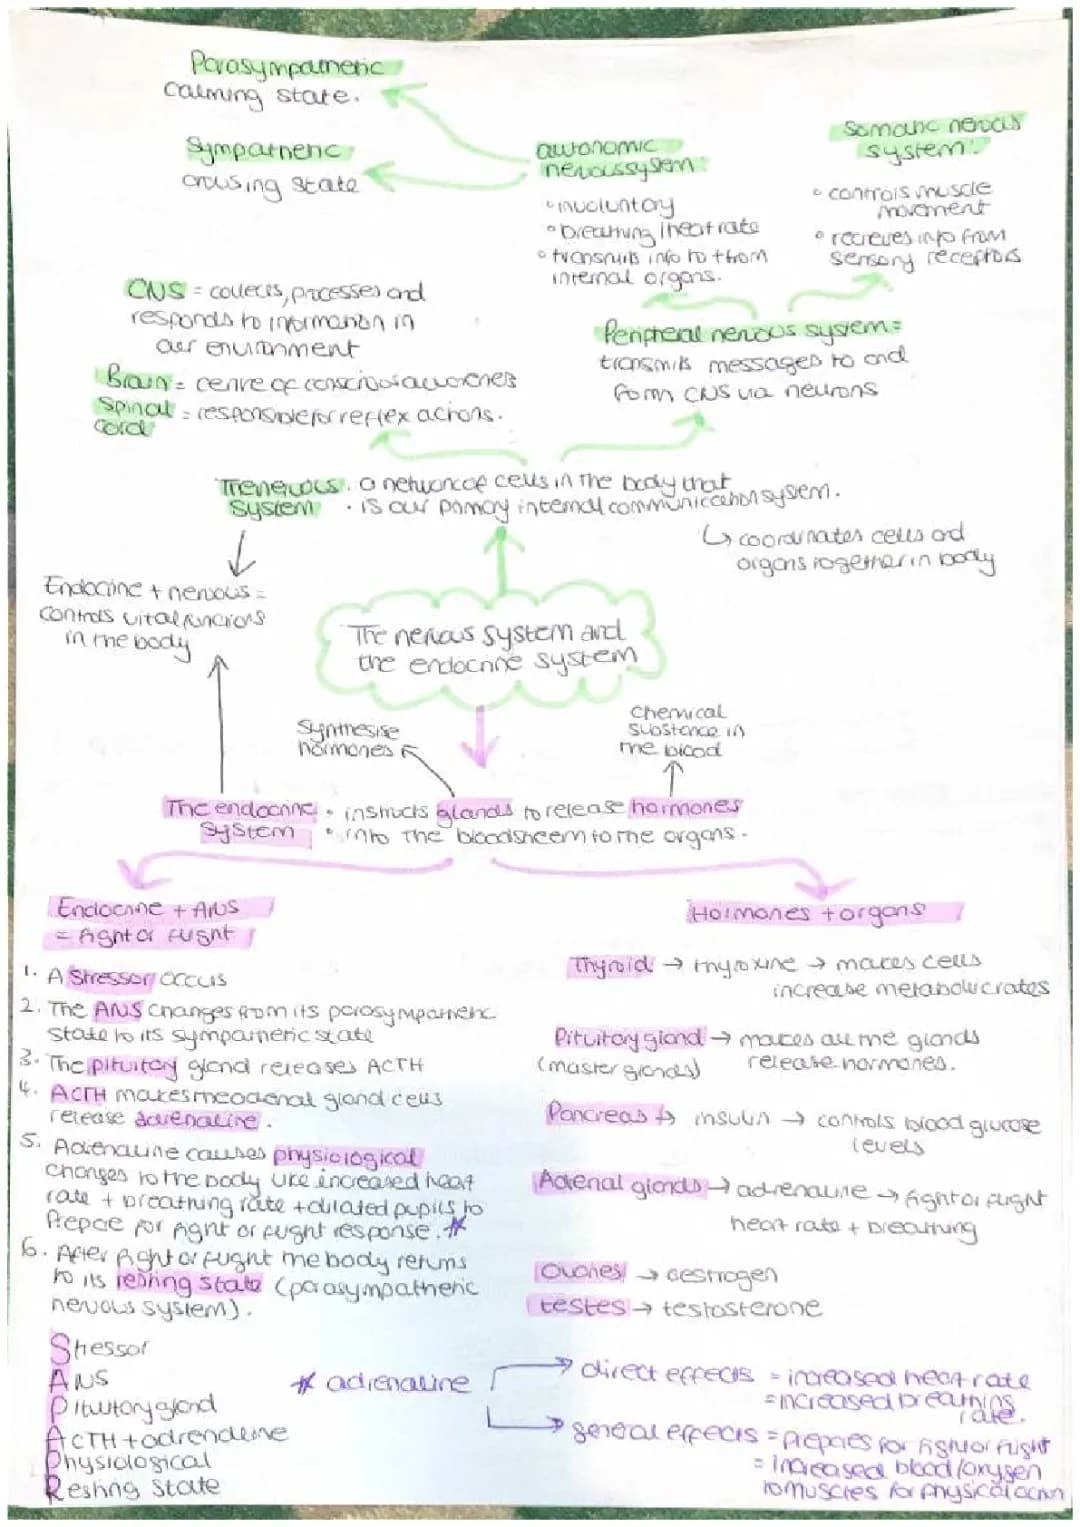 Parasympathetic
calming state.
Sympathetic
arousing state
autonomic
nervous system:
• involuntary
• breathing, heart rate
• transmits info to + from
internal organs.
Somatic nervous
system:
• controls muscle
movement
• recieves info from
sensory receptors
CNS = collects, processes and
responds to information in
our environment
Brain = centre of conscious awareness
Spinal = responsible for reflex actions.
cord
Peripheral nervous system =
transmits messages to and
form CNS via neurons
The nervous . a network of cells in the body that
system . is our primary internal communication system.
↳ coordinates cells and
organs together in body
Endocrine + nervous =
controls vital functions
in the body
The nervous system and
the endocrine system
Synthesise
hormones
Chemical
substance in
the blood
The endocrine • instructs glands to release hormones
system • into the bloodstream to the organs.
Endocrine + ANS
= fight or flight
1. A stressor occurs
2. The ANS changes from its parasympathetic
state to its sympathetic state
3. The pituitary gland releases ACTH
4. ACTH makes the adrenal gland cells
release adrenaline.
5. Adrenaline causes physiological
changes to the body like increased heart
rate + breathing rate + dilated pupils to
prepare for fight or flight response. *
6. After fight or flight the body returns
to its resting state (parasympathetic
nervous system).
Stressor
ANS
Pituitary gland
ACTH + adrenaline
Physiological
Resting State
Hormones + organs
Thyroid → thyroxine → makes cells
increase metabolic rates
Pituitary gland → makes all the glands
(master glands) release hormones.
Pancreas → insulin → controls blood glucose
levels
Adrenal glands → adrenaline → fight or flight
heart rate + breathing
Ovaries → oestrogen
testes → testosterone
* adrenaline
→ direct effects = increased heart rate
= increased breathing
rate.
→ general effects = prepares for fight or flight
= increased blood/oxygen
to muscles for physical action